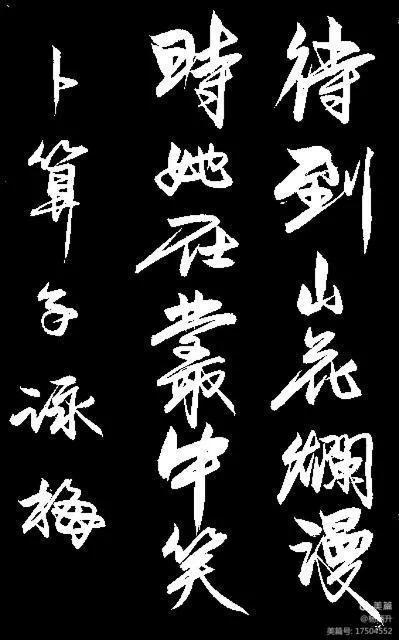 待到山花爛漫
時她在叢中笑
卜算子詠梅
美篇
美篇号: 17504552